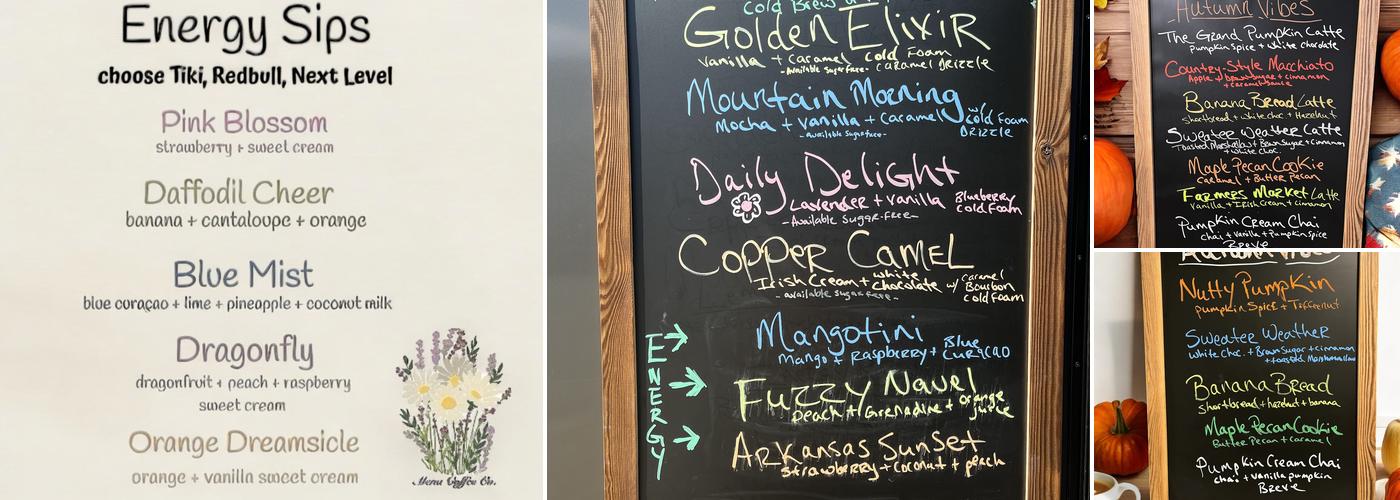 Energy Sips
choose Tiki, Redbull, Next Level
Pink Blossom
strawberry + sweet cream
Daffodil Cheer
banana + cantaloupe + orange
Blue Mist
blue curaçao + lime + pineapple + coconut milk
Dragonfly
dragonfruit + peach + raspberry
sweet cream
Orange Dreamsicle
orange + vanilla sweet cream
Cold Brew
Golden Elixir
Vanilla + Caramel Cold Foam
-Available Sugarfree- Caramel Drizzle
Mountain Morning
Mocha + Vanilla + Caramel w/ Cold Foam
Drizzle
-available Sugarfree-
Daily Delight
Lavender + Vanilla Blueberry
Cold Foam
-Available Sugar-free-
Copper Camel
Irish Cream + White Chocolate w/ Caramel Bourbon
cold Foam
-available Sugarfree-
ENERGY
Mangotini
Mango + Raspberry + Blue Curacao
Fuzzy Navel
Peach + Grenadine + orange juice
Arkansas Sunset
Strawberry + Coconut + peach
Autumn Vibes
The Grand Pumpkin Latte
Pumpkin Spice + White chocolate
Country-Style Macchiato
Apple + brown sugar + cinnamon
+ caramel sauce
Banana Bread Latte
Shortbread + White choc + Hazelnut
Sweater Weather Latte
Toasted Marshmallow + Brown Sugar + Cinnamon
+ White choc.
Maple Pecan Cookie
Caramel + Butter Pecan
Farmers Market Latte
Vanilla + Irish Cream + cinnamon
Pumpkin Cream Chai
chai + Vanilla + Pumpkin Spice
Breve
Autumn Vibes
Nutty Pumpkin
Pumpkin Spice + Toffeenut
Sweater Weather
White Choc. + Brown Sugar + Cinnamon
+ toasted Marshmallow
Banana Bread
Shortbread + hazelnut + banana
Maple Pecan Cookie
Butter Pecan + Caramel
Pumpkin Cream Chai
chai + Vanilla pumpkin
Breve